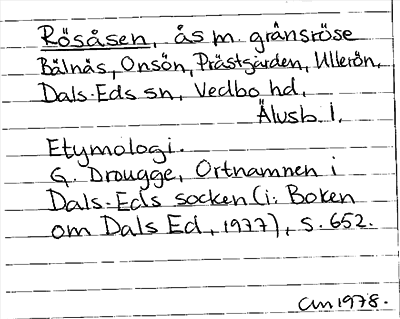 Rösåsen, ås m. gränsröse
Bälnäs, Onsön, Prästgården, Ullerön,
Dals-Eds sn, Vedbo hd,
Älvsb. l.
Etymologi.
G. Drougge, Ortnamnen i
Dals-Eds socken (i: Boken
om Dals Ed, 1977), s. 652.
1978.